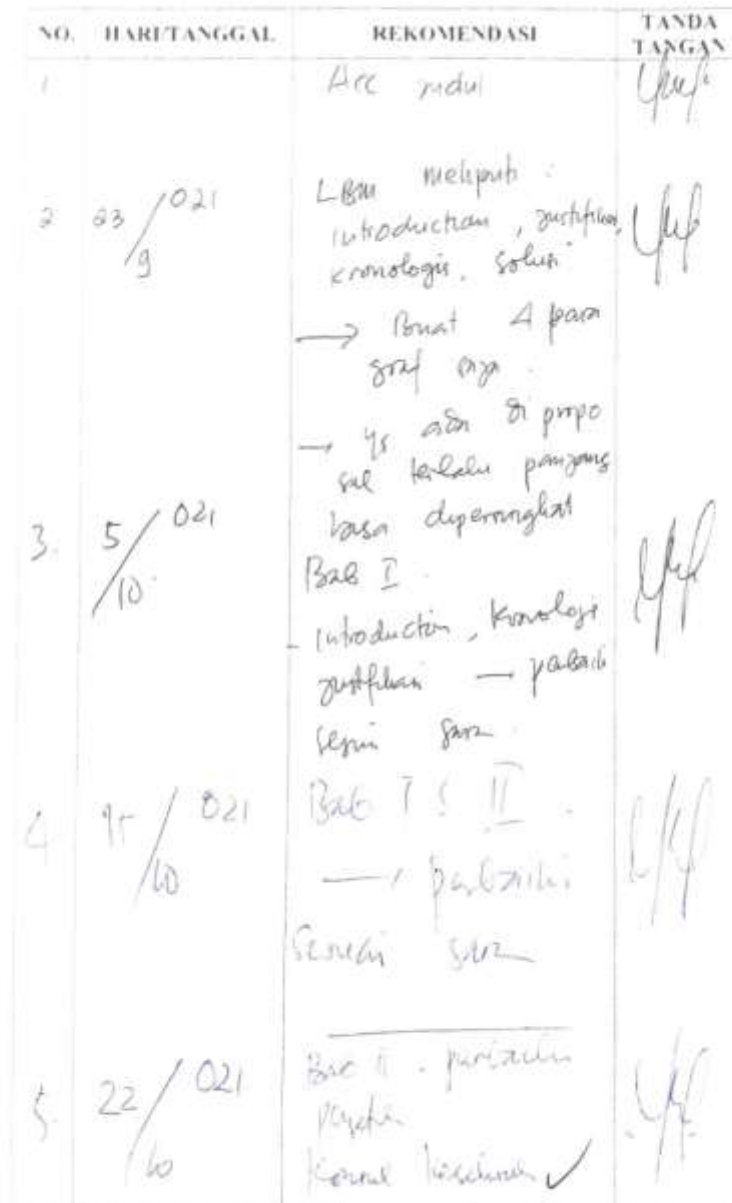 NO. HARI/TANGGAL REKOMENDASI TANDA TANGAN
1 Acc judul
2 23/9 021 LBM meliputi :
introduction, justifikasi,
kronologis, solusi
→ Buat 4 para
graf saja.
→ yg ada di propo
sal terlalu panjang
bisa dipersingkat
3. 5/10 021 Bab I.
- introduction, kronologi
justifikasi — perbaiki
sesuai saran.
4 15/10 021 Bab I & II.
→ perbaiki
sesuai saran
5. 22/10 021 Bab II. perbaiki
✓